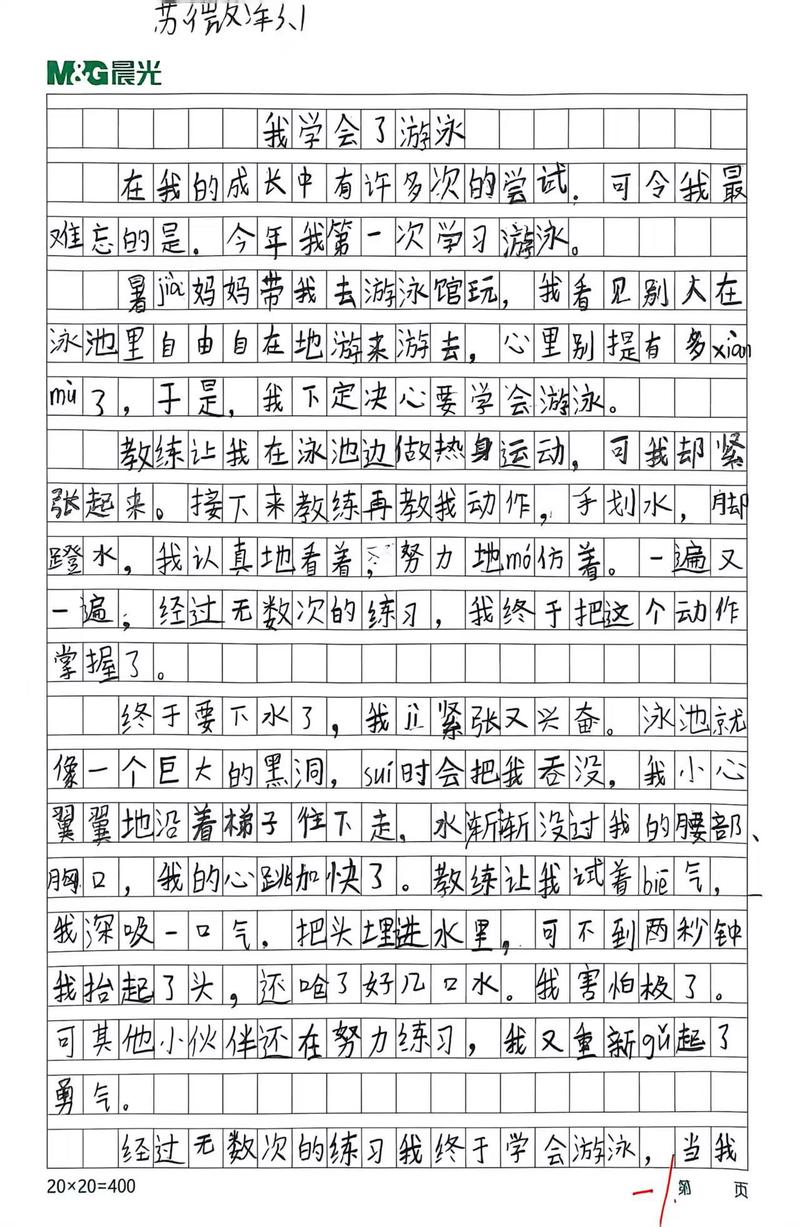 苏微洋3.1
M&G晨光
我学会了游泳
在我的成长中有许多次的尝试.可令我最
难忘的是.今年我第一次学习游泳。
暑jià妈妈带我去游泳馆玩，我看见别人在
泳池里自由自在地游来游去，心里别提有多xiàn
mù了，于是，我下定决心要学会游泳。
教练让我在泳池边做热身运动，可我却紧
张起来。接下来教练再教我动作，手划水，脚
蹬水，我认真地看着，努力地mó仿着。一遍又
一遍，经过无数次的练习，我终于把这个动作
掌握了。
终于要下水了，我jì紧张又兴奋。泳池就
像一个巨大的黑洞，suí时会把我吞没，我小心
翼翼地沿着梯子往下走.水渐渐没过我的腰部、
胸口，我的心跳加快了。教练让我试着biē气，
我深吸一口气.把头埋进水里，可不到两秒钟
我抬起了头，还呛了好几口水。我害怕极了。
可其他小伙伴还在努力练习，我又重新gǔ起了
勇气。
经过无数次的练习我终于学会游泳，当我
20×20=400 一/第 页